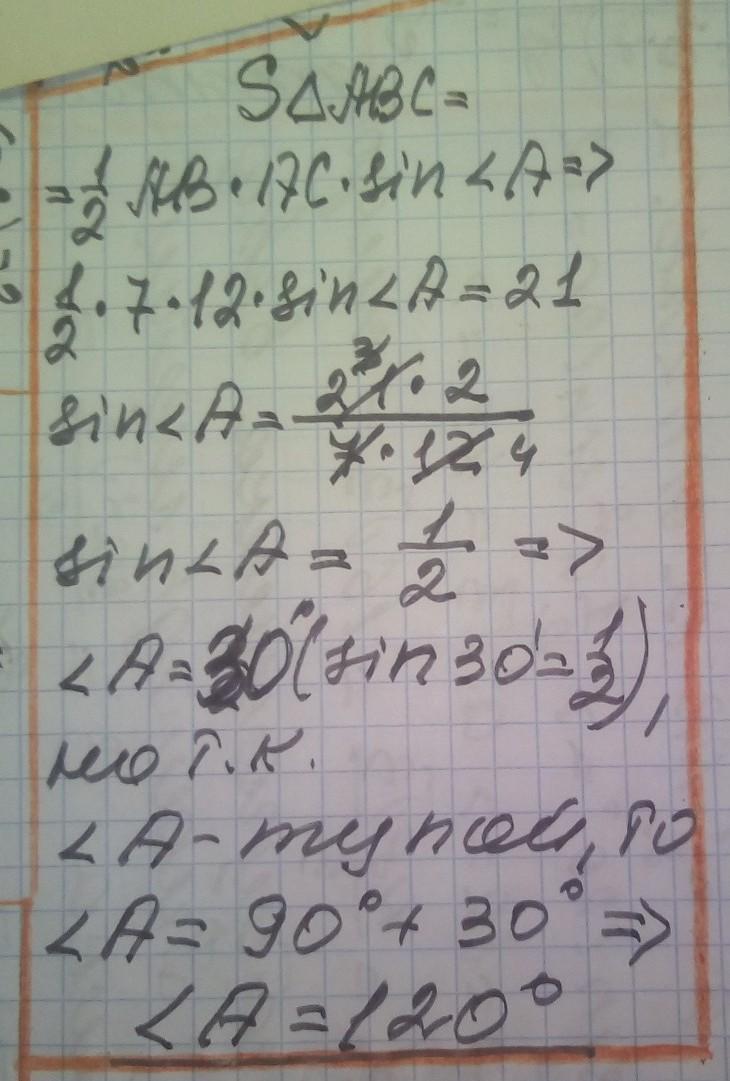 S△ABC=
=1/2 AB·AC·sin<A=>
1/2·7·12·sin<A=21
sin<A= 21 3·2 / 7·12 4
sin<A= 1/2 =>
<A=30°(sin30°=1/2),
но т.к.
<A-тупой, то
<A= 90°+ 30° =>
<A=120°